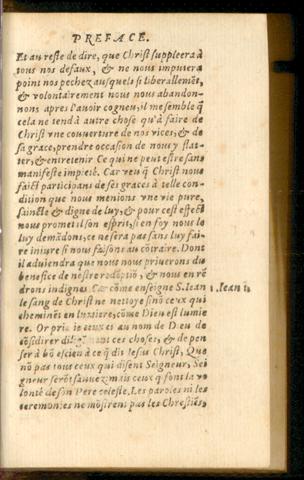 PREFACE.
Et au reste de dire, que Christ suppleera à
tous nos defaux, & ne nous imputera
point nos pechez ausquels si liberallemẽt,
& volontairement nous nous abandon-
nons apres l'auoir cogneu, il me semble q̃
cela ne tend à autre chose qu'à faire de
Christ vne couuerture de nos vices, & de
sa grace, prendre occasion de nous y flat-
ter, & entretenir Ce qui ne peut estre sans
manifeste impieté. Car veu q̃ Christ nous
faict participans de ses graces à telle con-
dition que nous menions vne vie pure,
saincte & digne de luy, & pour cest effect
nous promet il son esprit, si en foy nous le
luy demãdons, ce ne sera pas sans luy fai-
re iniure si nous faisons au cõtraire. Dont
il aduiendra que nous nous priuerons du
benefice de nostre redẽptiõ, & nous en rẽ-
drons indignes Car cõme enseigne S. Iean
le sang de Christ ne nettoye sinõ ceux qui
cheminẽt en lumiere, cõme Dieu est lumie
re. Or prie ie eux et au nom de Dieu de
cõsidirer ces choses, & de pen
ser à bõ esciẽt à ce q̃ dit Iesus Christ, Que
nõ pas tous ceux qui disent Seigneur, Sei
gneur serõt sauuez mais ceux q̃ font la vo
lonté de son Pere celeste. Les paroles ni les
ceremonies ne mõstrent pas les Chrestiẽs,
1. Iean 1.